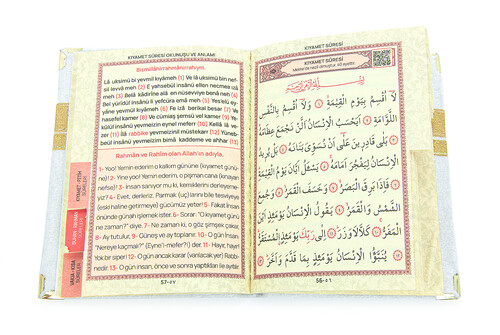 KIYAMET SÛRESİ OKUNUŞU VE ANLAMI
Bismillâhirrahmânirrahîym.
Lâ uksimü bi yevmil kıyâmeh (1) Ve lâ uksimü bin nef-
sil levvâ meh (2) E yahsebül insânü ellen necmea izâ
meh (3) Belâ kâdirîne alâ en nüsevviye benâ neh (4)
Bel yürîdül insânü li yefcüra emâ meh (5) Yes'elü ey-
yâne yevmül kıyâmeh (6) Fe izâ berikal besar (7) Ve
hasefel kamer (8) Ve cümiaş şemsü vel kamer (9) Ye-
kûlül insânü yevmeizin eynel mefer (10) Kellâ lâ ve-
zer (11) İlâ rabbike yevmeizinil müstekarr (12) Yüneb-
beül insânü yevmeizim bimâ kaddeme ve ahhar (13)
Rahmân ve Rahîm olan Allah'ın adıyla.
1- Yoo! Yemin ederim o kalkım gününe (kıyamet gü-
nüne)! 2- Yine yoo! Yemin ederim, o pişman cana (kınayan
nefse)! 3- İnsan sanıyor mu ki, kemiklerini derleyeme-
yiz? 4- Evet, derleriz. Parmak (uç) larını bile tesviyeye
(eski haline getirmeye) gücümüz yeter! 5- Fakat İnsan
önünde günah işlemek ister. 6- Sorar: "O kıyamet günü
ne zaman?" diye. 7- Ne zaman ki, o göz şimşek çakar
8- Ay tutulur. 9- Güneş ve ay toplanır. 10- O gün İnsan,
"Nereye kaçmalı?" (Eyne'l-mefer?) der. 11- Hayır, hayır!
Yok bir siper! 12- O gün ancak karar (varılacak yer) Rabbi-
nedir. 13- O gün insan, önce ve sonra yaptıkları ile ayartılır.
57-٥٧
KIYAMET - FETİH
SÛRELER
VAKIA - KISA
SÛRELER
KIYAMET SÛRESİ
Mekke'de nazil olmuştur. 40 ayettir.
بِسْمِ اللّٰهِ الرَّحْمٰنِ الرَّحِيمِ
لَٓا اُقْسِمُ بِيَوْمِ الْقِيٰمَةِۙ ﴿١﴾ وَلَٓا اُقْسِمُ بِالنَّفْسِ
اللَّوَّامَةِ ﴿٢﴾ اَيَحْسَبُ الْاِنْسَانُ اَلَّنْ نَجْمَعَ عِظَامَهُ
﴿٣﴾ بَلٰى قَادِرِينَ عَلٰٓى اَنْ نُسَوِّيَ بَنَانَهُ ﴿٤﴾ بَلْ يُرِيدُ
الْاِنْسَانُ لِيَفْجُرَ اَمَامَهُ ﴿٥﴾ يَسْـَٔلُ اَيَّانَ يَوْمُ الْقِيٰمَةِ
﴿٦﴾ فَاِذَا بَرِقَ الْبَصَرُ ﴿٧﴾ وَخَسَفَ الْقَمَرُ ﴿٨﴾ وَجُمِعَ
الشَّمْسُ وَالْقَمَرُ ﴿٩﴾ يَقُولُ الْاِنْسَانُ يَوْمَئِذٍ اَيْنَ
الْمَفَرُّ ﴿١٠﴾ كَلَّا لَا وَزَرَ ﴿١١﴾ اِلٰى رَبِّكَ يَوْمَئِذٍ الْمُسْتَقَرُّ
﴿١٢﴾ يُنَبَّؤُا الْاِنْسَانُ يَوْمَئِذٍ بِمَا قَدَّمَ وَاَخَّرَ ﴿١٣﴾
56-٥٦